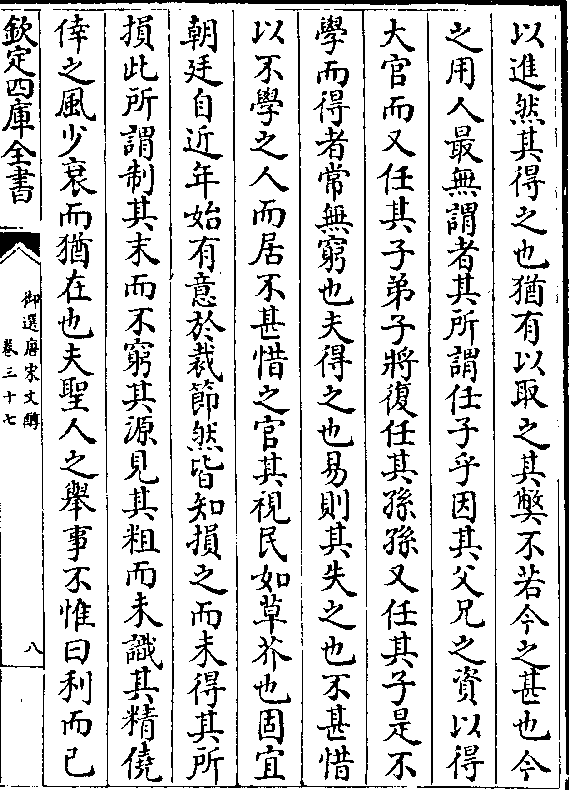 以進然其得之也猶有以取之其弊不若今之甚也今
之用人最無謂者其所謂任子乎因其父兄之資以得
大官而又任其子弟子將復任其孫孫又任其子是不
學而得者常無窮也夫得之也易則其失之也不甚惜
以不學之人而居不甚惜之官其視民如草芥也固宜
朝廷自近年始有意於裁節然皆知損之而未得其所
損此所謂制其末而不窮其源見其粗而未識其精僥
倖之風少衰而猶在也夫聖人之舉事不惟曰利而已
欽定四庫全書
御選唐宋文醇
卷三十七
八